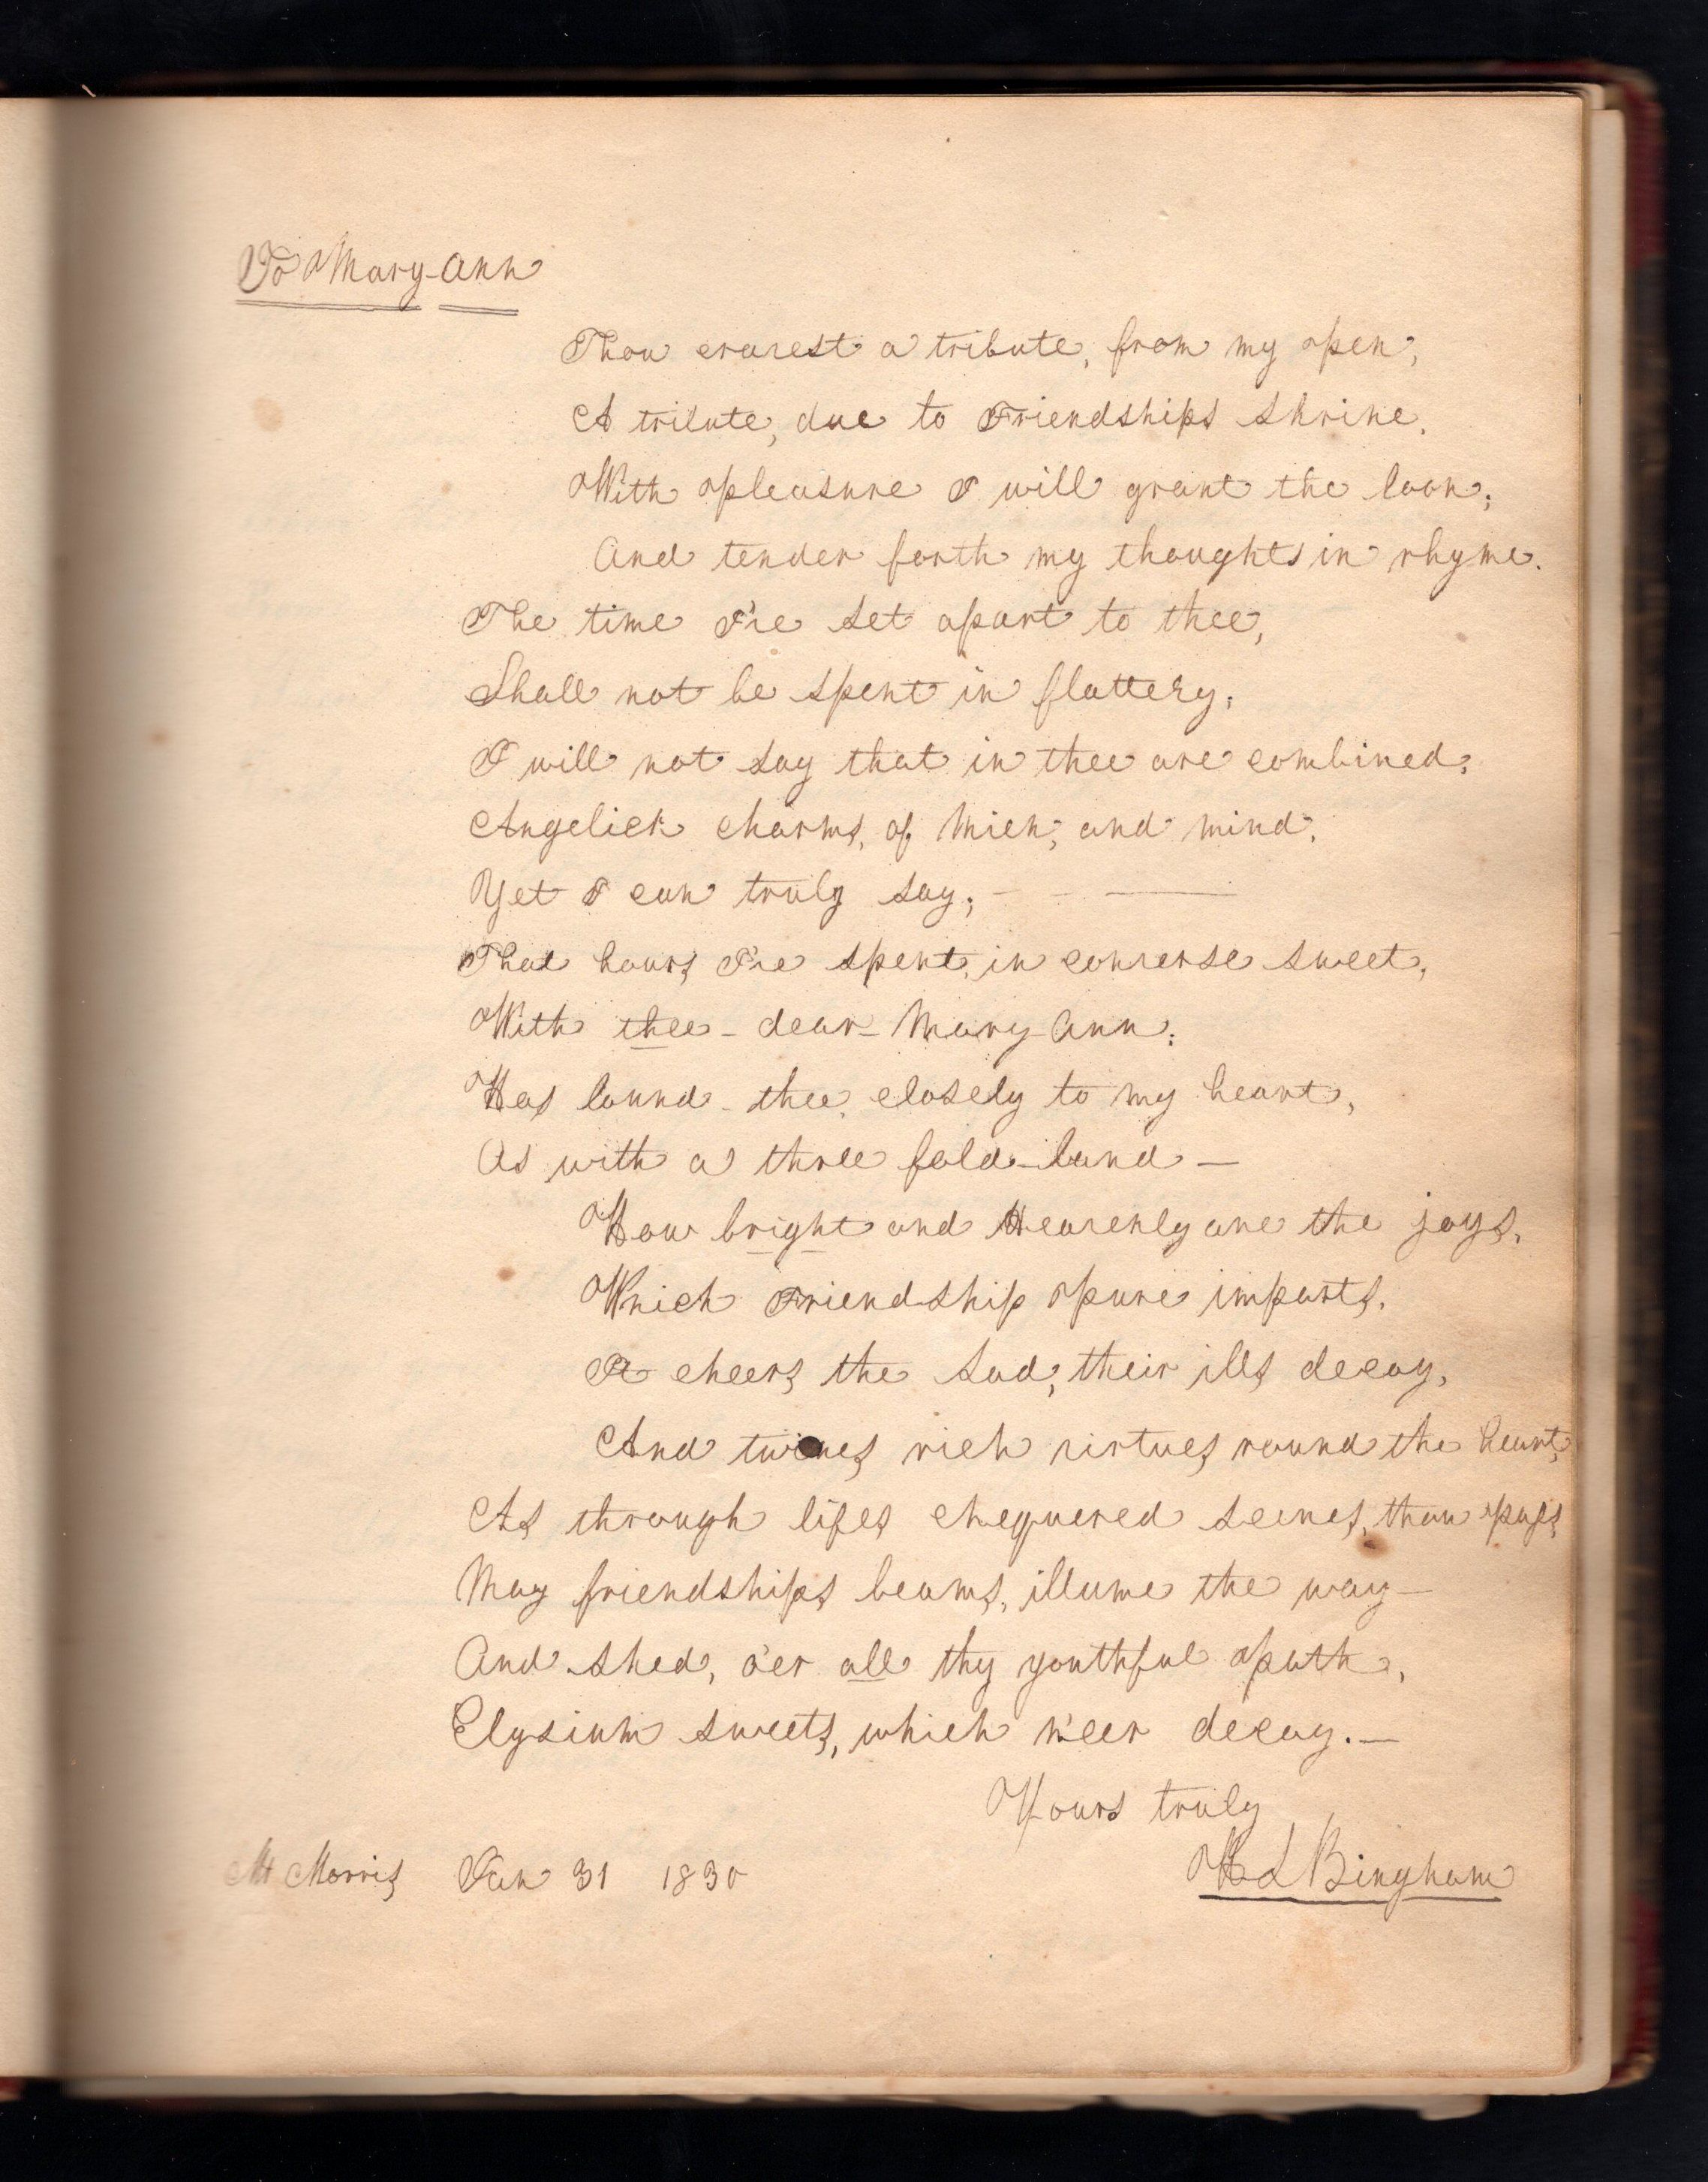 To Mary-Ann
Thou cravest a tribute, from my pen,
A tribute, due to Friendships shrine.
With pleasure I will grant the loan;
And tender forth my thoughts in rhyme.
The time I've set apart to thee,
Shall not be spent in flattery;
I will not say that in thee are combined,
Angelick charms, of mien, and mind;
Yet I can truly say; - - —
That hours I've spent, in converse sweet,
With thee - dear - Mary Ann;
Has bound - thee, closely to my heart,
As with a three fold - band —
How bright and Heavenly are the joys,
Which Friendship pure imparts,
It cheers the sad, their ills decay,
And twines rich virtues round the heart,
As through lifes chequered scenes, thou pass,
May friendships beams, illume the way —
And shed, o'er all thy youthful path,
Elysium sweets, which n'eer decay. —
Yours truly
H L Bingham
Mt Morris Jan 31 1830